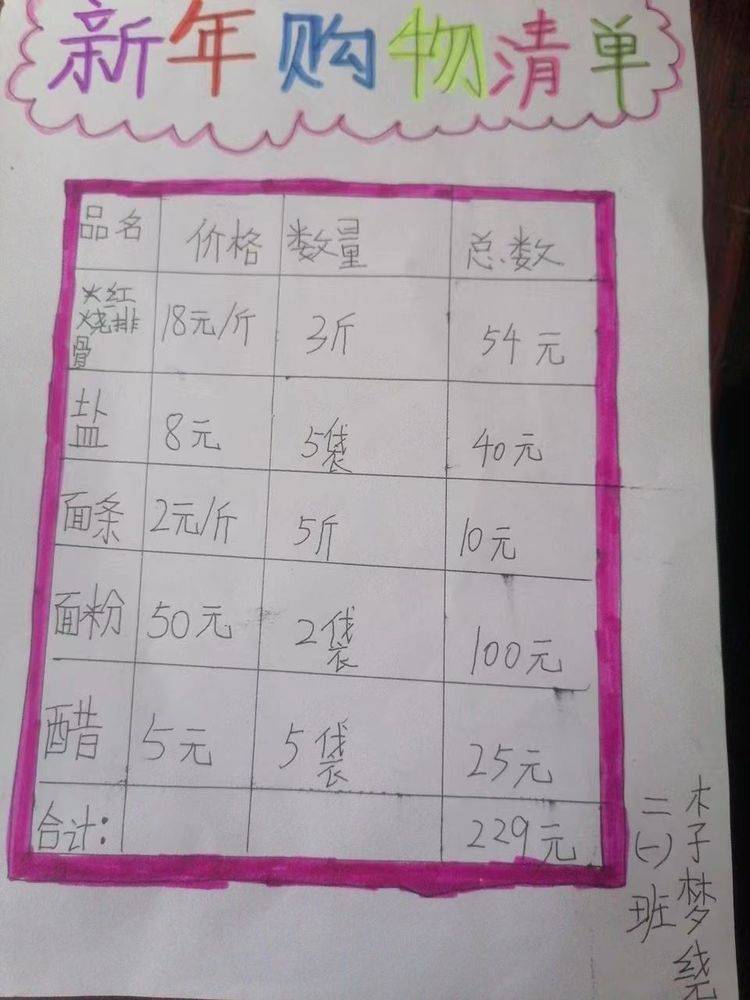 新年购物清单
品名 价格 数量 总数
火红烧排骨 18元/斤 3斤 54元
盐 8元 5袋 40元
面条 2元/斤 5斤 10元
面粉 50元 2袋 100元
醋 5元 5袋 25元
合计: 229元
二(一)班
李梦绕